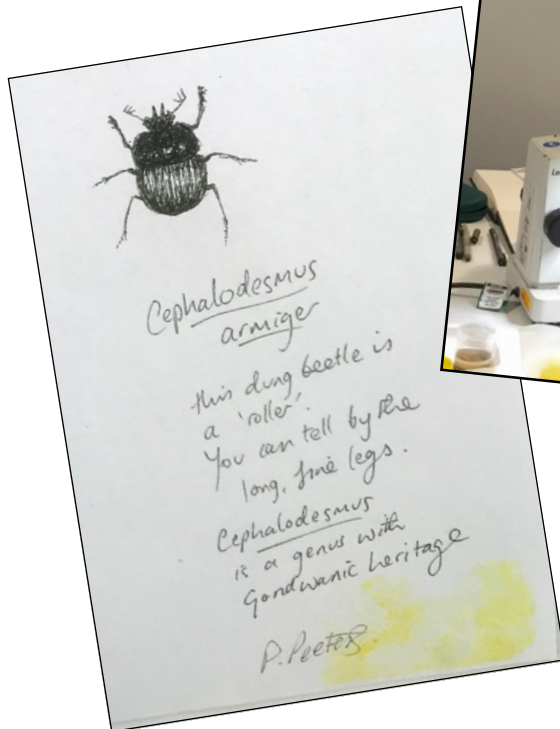 Cephalodesmus
armiger
this dung beetle is
a 'roller'.
You can tell by the
long, fine legs.
Cephalodesmus
is a genus with
Gondwanic heritage
P. Peeters